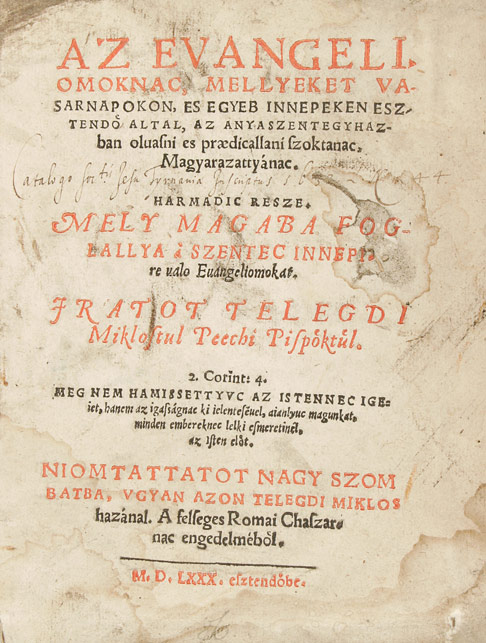 AZ EVANGELI,
OMOKNAC, MELLYEKET VA-
SARNAPOKON, ES EGYEB INNEPEKEN ESZ-
TENDŐ ALTAL, AZ ANYASZENTEGYHAZ-
ban oluasni es prædicallani szoktanac,
Magyarazattyánac.
Catalogo Soctis Jesu
HARMADIC RESZE.
MELY MAGABA FOG-
LALLYA à SZENTEC INNEPI-
re valo Euangeliomokat.
IRATOT TELEGDI
Miklostul Peechi Pispöktül.
2. Corint: 4.
MEG NEM HAMISSETTYVC AZ ISTENNEC IGE-
iet, hanem az igasságnac ki ielenteséuel, aianlyuc magunkat,
minden embereknec lelki esmeretinél,
az Isten elöt.
NIOMTATTATOT NAGY SZOM
BATBA, VGYAN AZON TELEGDI MIKLOS
hazánal. A felseges Romai Chaszar-
nac engedelméböl.
M. D. LXXX. esztendöbe.